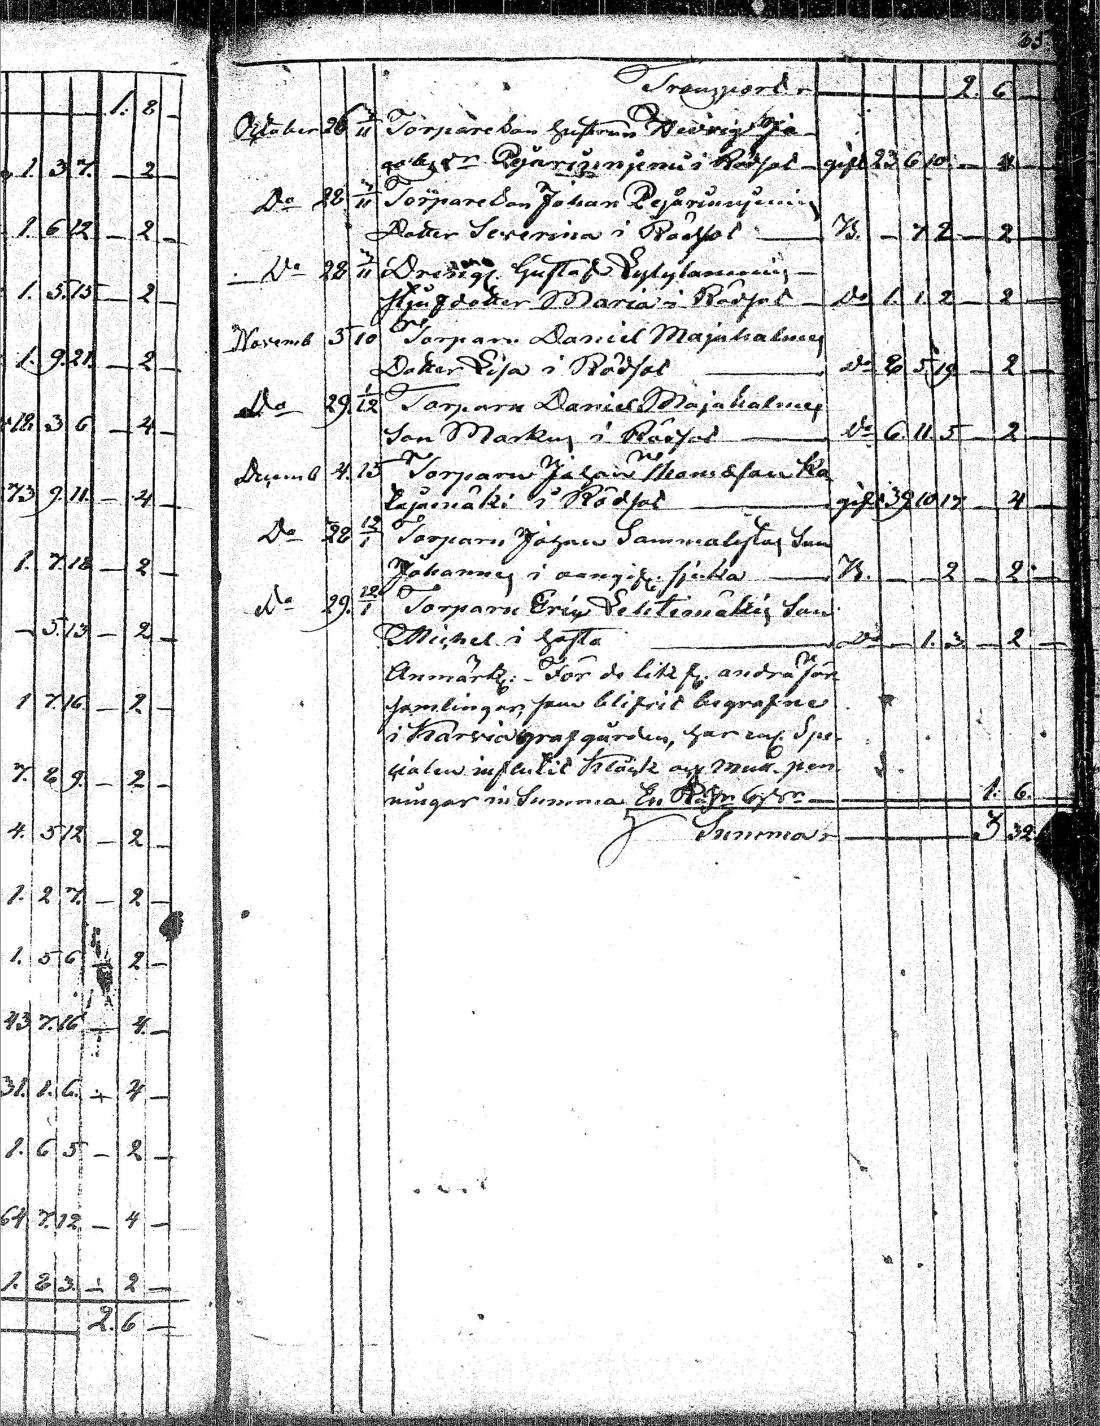 1. 8
1. 3 7. – 2 –
1. 6 12 – 2 –
1. 5. 15 – 2 –
1. 9. 21. – 2 –
3 6 – 4 –
73 9. 11. – 4 –
1. 7. 18 – 2 –
– 5. 13 – 2 –
1 7. 16. – 2 –
7. 8 9. – 2 –
4. 5 12 – 2 –
1. 2 7. – 2 –
1. 5 6 – 2 –
43 7. 16 – 4 –
31. 1. 6. – 4 –
1. 6 5 – 2 –
64 7. 12 – 4 –
1. 8 3. – 2 –
2. 6 –
25.
Transport 2. 6
October 26 Torparedan Hustrun Hedvig Ja
i Rödsol gift 23 6 10 – 4
Do 28 Torparedan Johan
Dotter Severina i Rödsol B. – 7 2 – 2
Do 28 Gustaf
dotter Maria i Rödsol Do 1. 1. 2 – 2
Novemb 3 10 Torparn Daniel Majakalmes
Dotter Lisa i Rödsol Do 8 5 19 – 2
Do 29. 1/12 Torparn Daniel Majakalmes
Son Markus i Rödsol Do 6. 11. 5 – 2
Decemb 4. 15 Torparn Johan Thomasson Ka
tajamäki i Rödsol gift 39 10 17 – 4
Do 28 12/1 Torparn Johan Sammalistos Son
Johannes i B. – – 2 – 2
Do 29. 12/1 Torparn Eric Lehtimäkis Son
Michel i Do – 1. 3 – 2 –
Anmärk. – För de lik fr. andra för
samlingar, som blifvit begrafne
i Karvia grafgården, har enl. Spe-
cialen influtit Klock och Mull. pen
ningar in Summa En Rdr 6 1. 6.
Summa 3 32